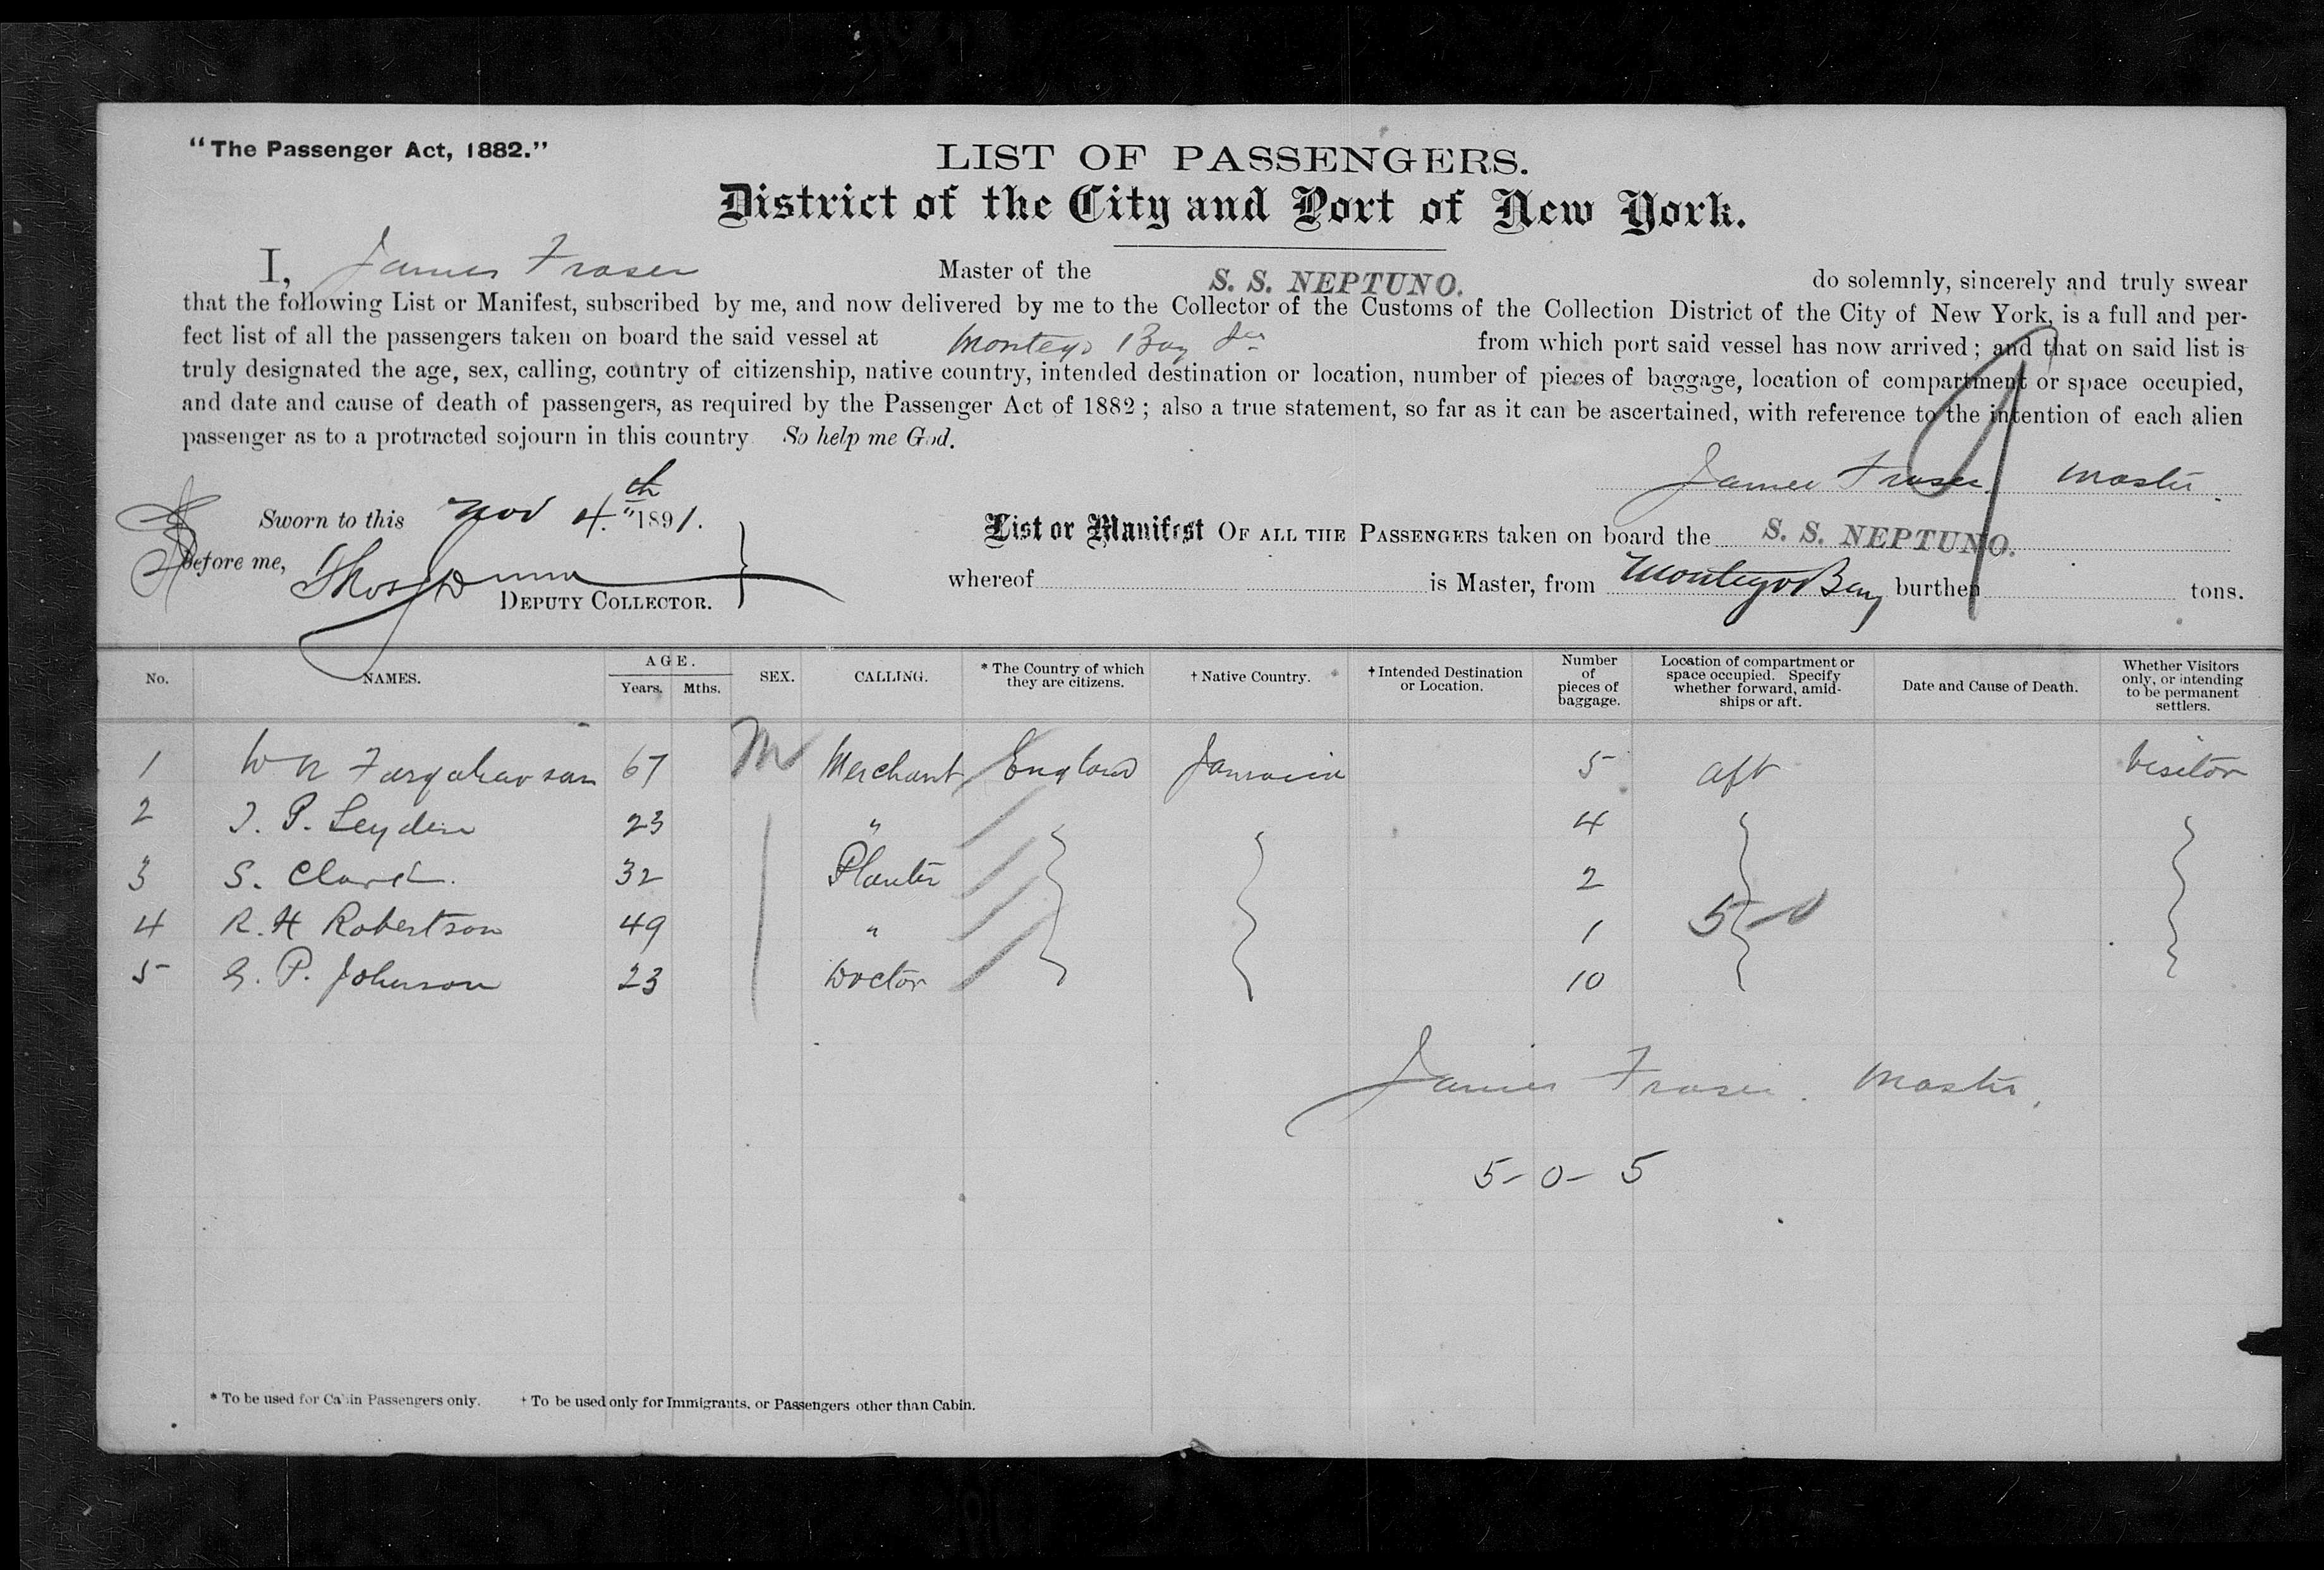 "The Passenger Act, 1882."
LIST OF PASSENGERS.
District of the City and Port of New York.
I, James Fraser Master of the S. S. NEPTUNO. do solemnly, sincerely and truly swear
that the following List or Manifest, subscribed by me, and now delivered by me to the Collector of the Customs of the Collection District of the City of New York, is a full and per-
fect list of all the passengers taken on board the said vessel at Montego Bay Ja from which port said vessel has now arrived; and that on said list is
truly designated the age, sex, calling, country of citizenship, native country, intended destination or location, number of pieces of baggage, location of compartment or space occupied,
and date and cause of death of passengers, as required by the Passenger Act of 1882; also a true statement, so far as it can be ascertained, with reference to the intention of each alien
passenger as to a protracted sojourn in this country So help me God.
James Fraser. Master.
Sworn to this Nov 4.th 1891.
Before me, Thos Dunn
DEPUTY COLLECTOR.
List or Manifest OF ALL THE PASSENGERS taken on board the S. S. NEPTUNO.
whereof is Master, from Montego Bay burthen tons.
No. NAMES. AGE. Years. Mths. SEX. CALLING. * The Country of which they are citizens. † Native Country. † Intended Destination or Location. Number of pieces of baggage. Location of compartment or space occupied. Specify whether forward, amid-ships or aft. Date and Cause of Death. Whether Visitors only, or intending to be permanent settlers.
1 W N Farquharson 67 M Merchant England Jamaica 5 aft Visitor
2 J. P. Leyden 23 " 4
3 S. Clark. 32 Planter 2
4 R. H Robertson 49 " 1 5-0
5 G. P. Johnson 23 Doctor 10
James Fraser. Master.
5-0-5
* To be used for Cabin Passengers only. † To be used only for Immigrants, or Passengers other than Cabin.